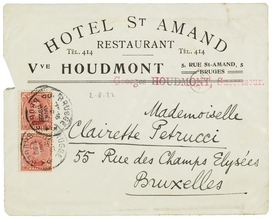 HOTEL ST AMAND
RESTAURANT
TÉL. 414 TÉL. 414
Vve HOUDMONT
5, RUE ST-AMAND, 5
BRUGES
Georges HOUDMONT, Successeur.
Mademoiselle
Clairette Petrucci
55 Rue des Champs Elysées
Bruxelles